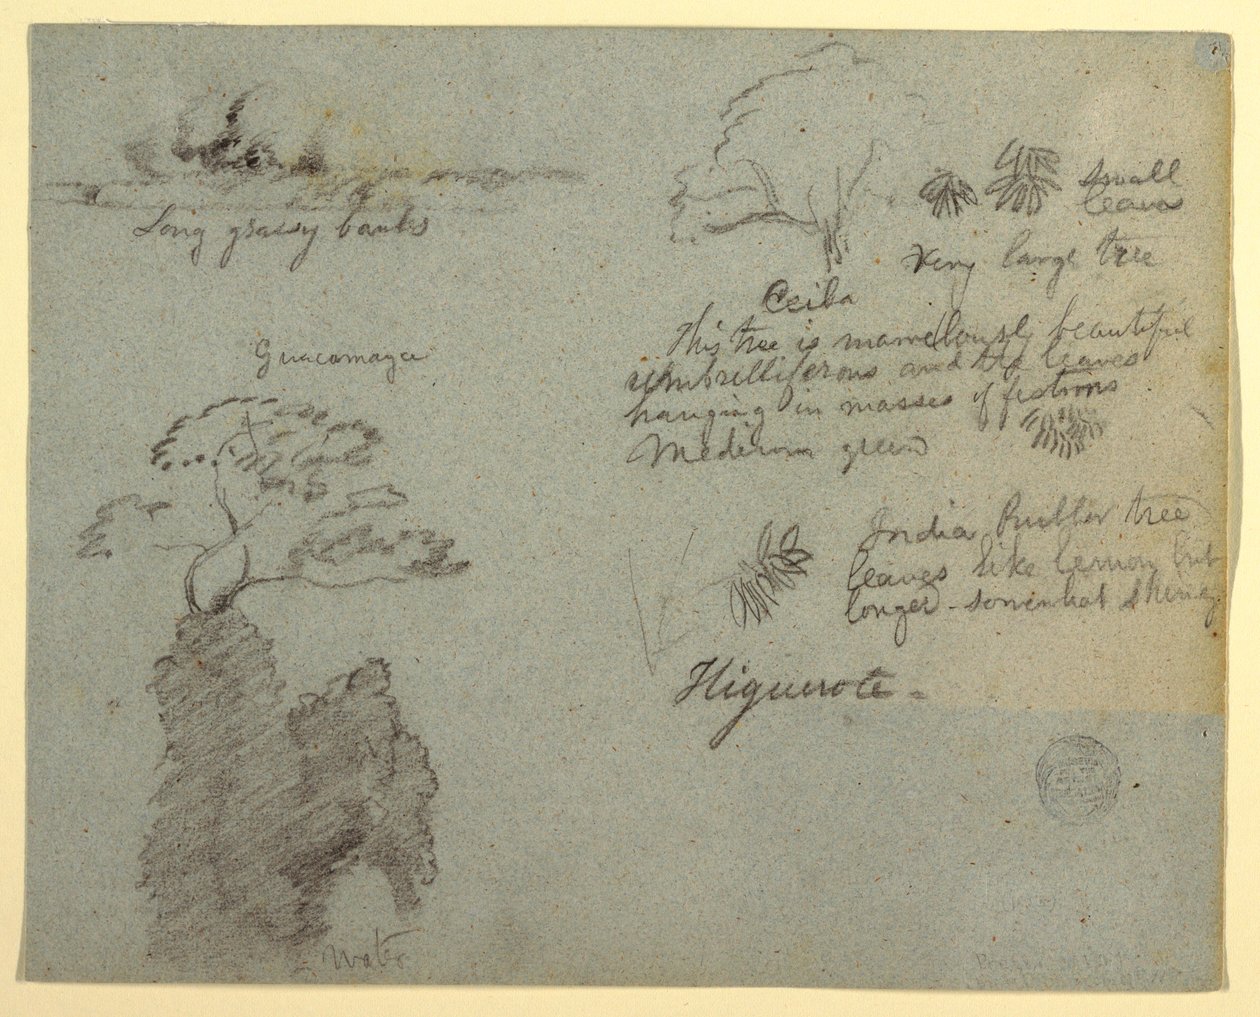 Long grassy banks
Guacamaya
water
small
leaves
Very large tree
Ceiba
This tree is marvelously beautiful
umbrelliferous and the leaves
hanging in masses of festoons
Mederum green
India Rubber tree
leaves like lemon but
longer - somewhat shiny
Higuerote -